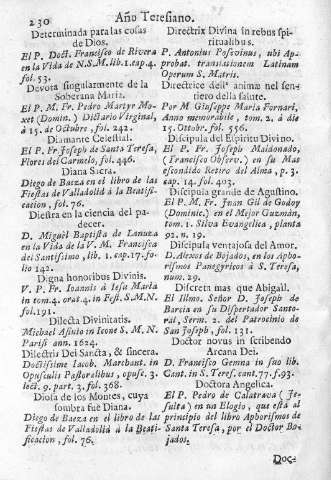 230
Año Teresiano.
Determinada para las cosas
de Dios.
El P. Doct. Francisco de Rivera
en la Vida de N.S.M. lib. 1. cap. 4.
fol. 53.
Devota singularmente de la
Soberana Maria.
El P. M. Fr. Pedro Martyr Mo-
xet (Domin.) Diclario Virginal,
à 15. de Octubre, fol. 242.
Diamante Celestial.
El P. Fr. Joseph de Santa Teresa,
Flores del Carmelo, fol. 446.
Diana Sacra.
Diego de Baeza en el libro de las
Fiestas de Valladolid à la Beatifi-
cacion, fol. 76.
Diestra en la ciencia del pa-
decer.
D. Miguel Baptista de Lanuza
en la Vida de la V. M. Francisca
del Santissimo, lib. 1. cap. 17. fo-
lio 142.
Digna honoribus Divinis.
V. P. Fr. Ioannis à Iesu Maria
in tom. 4. orat. 4. in Fest. S.M.N.
fol. 191.
Dilecta Divinitatis.
Michael Asinio in Icone S. M. N.
Parisi ann. 1624.
Dilectrix Dei Sancta, & sincera.
Doctissime Iacob. Marchant. in
Opusculi Pastoralibus, opusc. 3.
lect. 9. part. 3. fol. 368.
Diosa de los Montes, cuya
sombra fue Diana.
Diego de Baeza en el libro de las
Fiestas de Valladolid à la Beati-
ficacion, fol. 76.
Directrix Divina in rebus spi-
ritualibus.
P. Antonius Possovinus, ubi Ap-
probat. translationem Latinam
Operum S. Matris.
Directrice dell' animæ nel sen-
tiero della salute.
Por M. Giuseppe Maria Fornari,
Anno memorabile, tom. 2. à die
15. Ottobr. fol. 556.
Discipula del Espiritu Divino.
El P. Fr. Joseph Maldonado,
(Francisco Observ.) en su Mas
escondido Retiro del Alma, p. 3.
cap. 14. fol. 403.
Discipula grande de Agustino.
El P. M. Fr. Juan Gil de Godoy
(Dominic.) en el Mejor Guzmán,
tom. 1. Silva Evangelica, planta
92. n. 19.
Discipula ventajosa del Amor.
D. Alexos de Bojados, en los Apho-
rismos Panegyricos à S. Teresa,
num. 29.
Discreta mas que Abigail.
El Illmo. Señor D. Joseph de
Barzia en su Dispertador Santo-
ral, Serm. 2. del Patrocinio de
San Joseph, fol. 131.
Doctor novus in scribendo
Arcana Dei.
D. Francisco Gemna in suo lib.
Cant. in S. Teres. cant. 77. f. 93.
Doctora Angelica.
El P. Pedro de Calatrava (Je-
suita) en un Elogio, que està al
principio del libro Aphorismos de
Santa Teresa, por el Doctor Bo-
jados.
Doc-